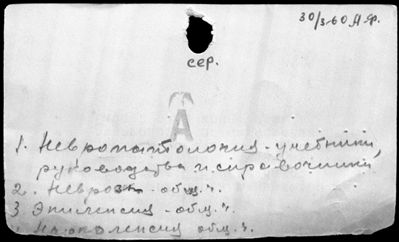 30/3-60 А.Ф.
сер.
1. Невропатология - учебники,
руководства и справочники
2. Невроз - общ. ч.
3. Эпилепсия - общ. ч.
Нарколепсия общ. ч.